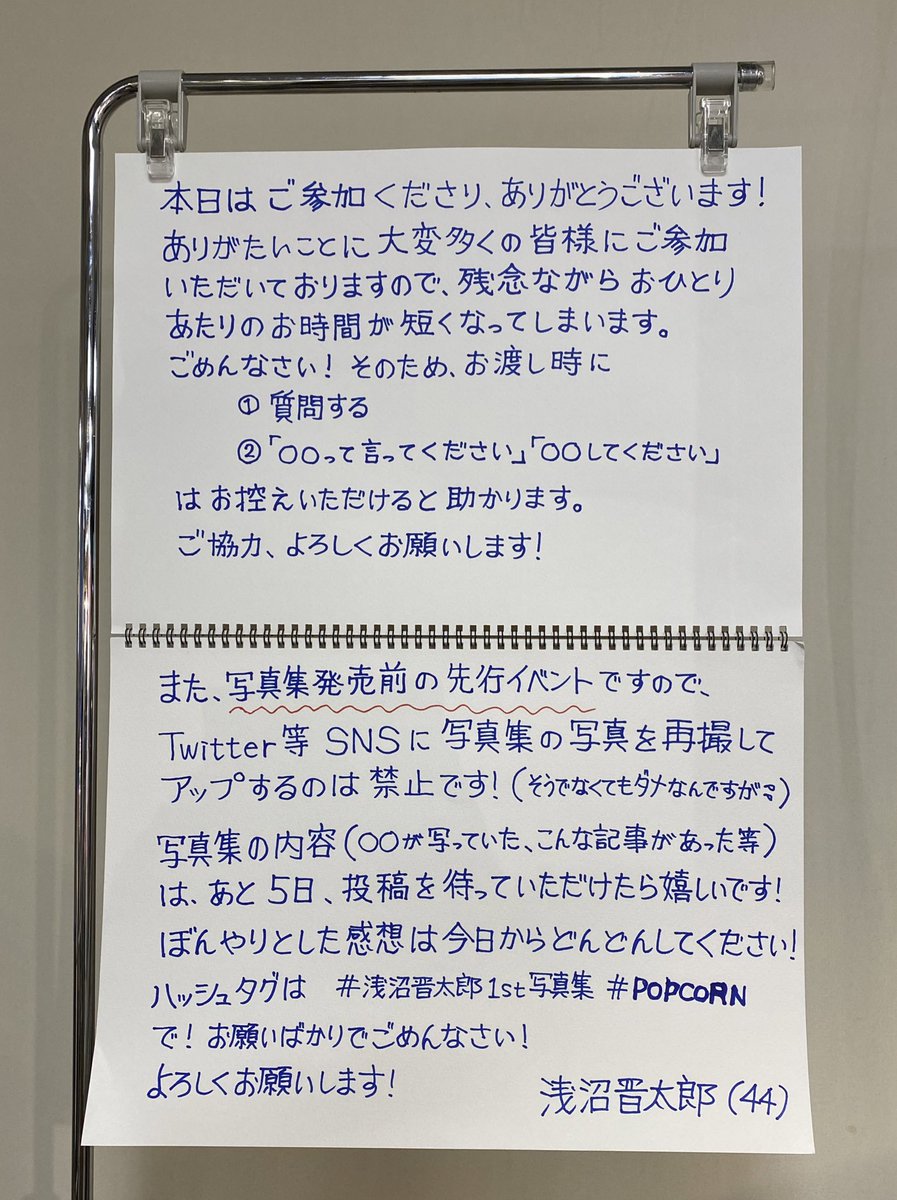 本日は ご参加くださり、ありがとうございます!
ありがたいことに 大変多くの皆様にご参加
いただいておりますので、残念ながら おひとり
あたりのお時間が短くなってしまいます。
ごめんなさい! そのため、お渡し時に
① 質問する
② 「○○って言ってください」「○○してください」
はお控えいただけると助かります。
ご協力、よろしくお願いします!
また、写真集発売前の先行イベントですので、
Twitter等 SNSに 写真集の写真を再撮して
アップするのは 禁止です! (そうでなくてもダメなんですが💦)
写真集の内容(○○が写っていた、こんな記事があった等)
は、あと5日、投稿を待っていただけたら嬉しいです!
ぼんやりとした感想は今日からどんどんしてください!
ハッシュタグは #浅沼晋太郎1st写真集 #POPCORN
で! お願いばかりでごめんなさい!
よろしくお願いします!
浅沼晋太郎(44)